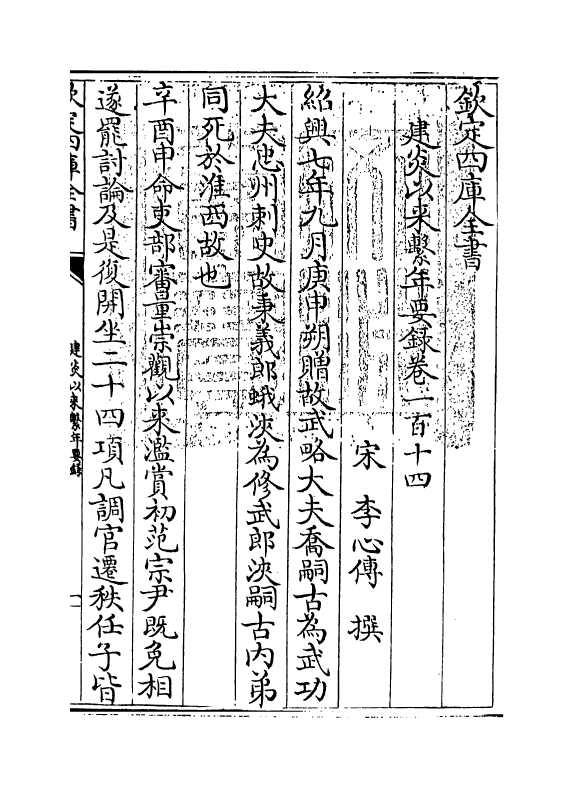 欽定四庫全書
建炎以來繫年要録卷一百十四
宋 李心傳 撰
紹興七年九月庚申朔贈故武略大夫喬嗣古為武功
大夫忠州刺史故秉義郎蛾浹為修武郎浹嗣古内弟
同死於淮西故也
辛酉申命吏部審量崇觀以來濫賞初范宗尹既免相
遂罷討論及是復開坐二十四項凡調官遷秩任子皆
欽定四庫全書
建炎以來繫年要録
一